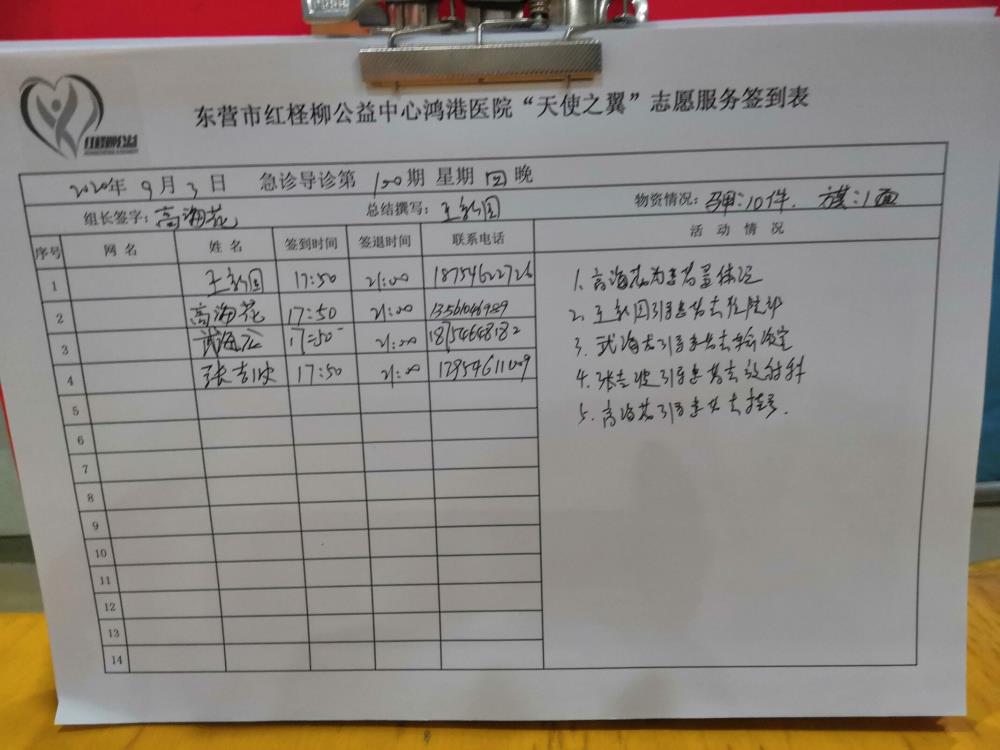 东营市红柽柳公益中心鸿港医院“天使之翼”志愿服务签到表
2020年 9月3日 急诊导诊第 150期 星期四晚
组长签字：高海花 总结撰写：王新国 物资情况：马甲：10件. 旗：1面
序号 网名 姓名 签到时间 签退时间 联系电话 活动情况
1 王新国 17:50 21:00 18754622726
2 高海花 17:50 21:00
3 武海云 17:50 21:00 18754648182
4 张志波 17:50 21:00
5
6
7
8
9
10
11
12
13
14
1. 高海花为患者量体温
2. 王新国引导患者去住院部
3. 武海云引导患者去输液室
4. 张志波引导患者去放射科
5. 高海花引导患者去挂号.